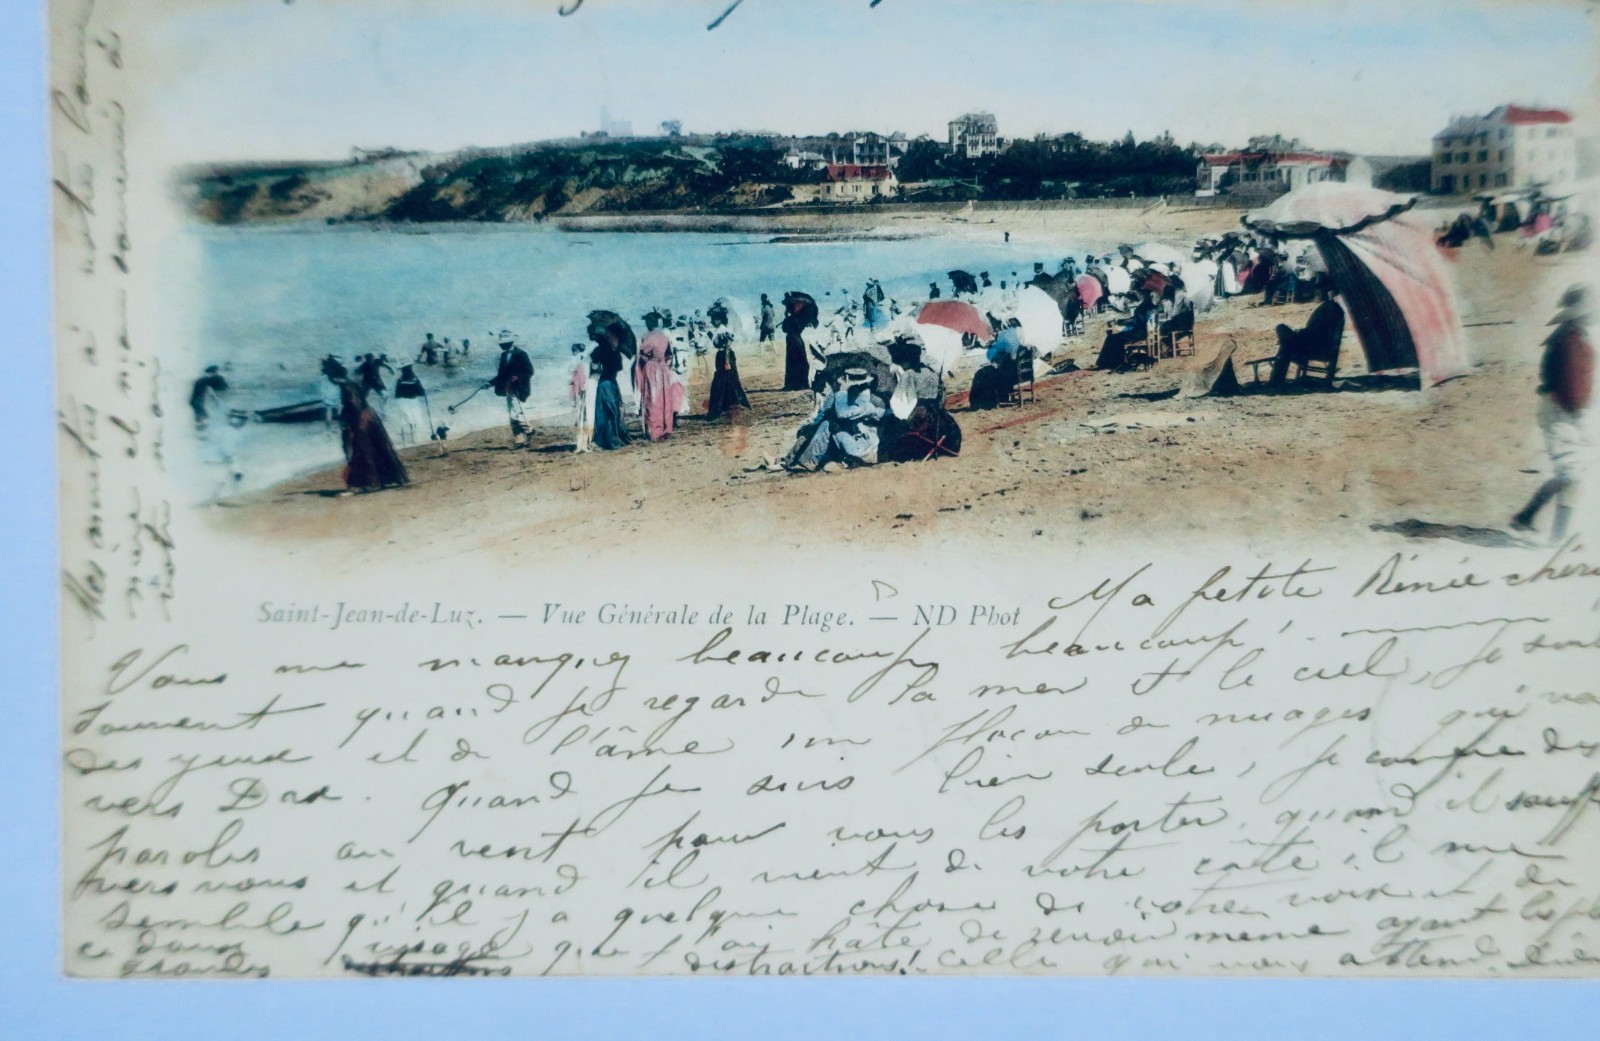 Saint-Jean-de-Luz. — Vue Générale de la Plage. — ND Phot
Ma petite Rénée chérie
Vous me manquez beaucoup beaucoup!
souvent quand je regarde la mer et le ciel, je suis
des yeux et de l'âme un flocon de nuages qui va
vers Dax. Quand je suis bien seule, je confie des
paroles au vent pour vous les porter, quand il souffle
vers vous et quand il vient de votre côté il me
semble qu'il y a quelque chose de votre voix et de
ce doux visage que j'ai hâte de revoir même ayant les plus
grandes distractions! Celle qui vous attend
Mes amitiés à votre bonne
mère et mon souvenir à
votre mari